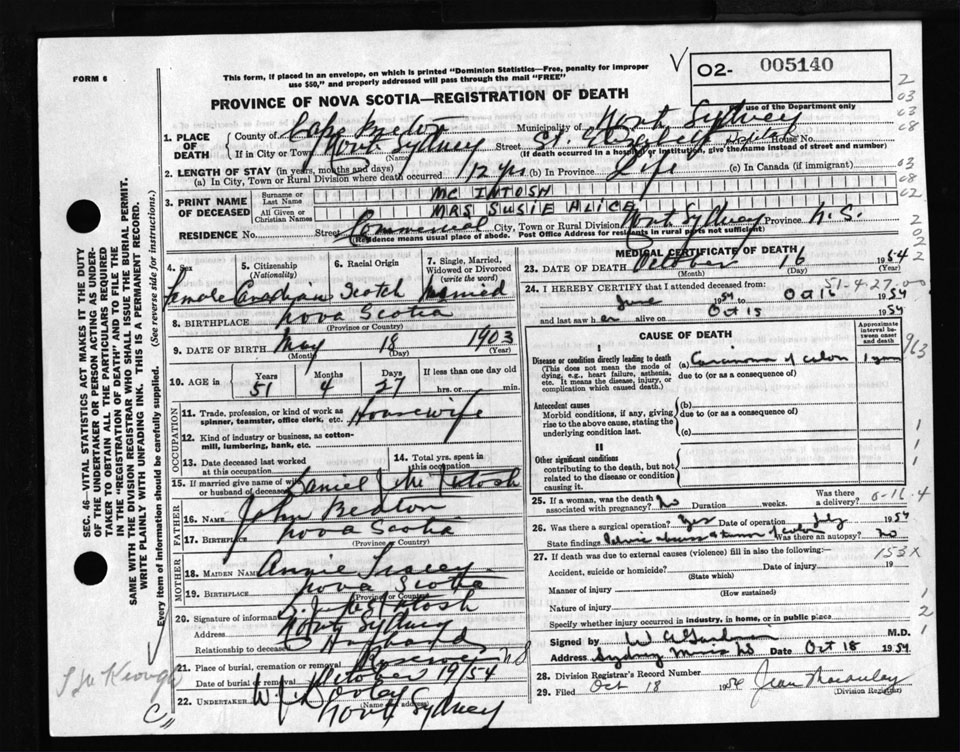 FORM 6
This form, if placed in an envelope, on which is printed "Dominion Statistics—Free, penalty for improper
use $50," and properly addressed will pass through the mail "FREE"
02- 005140
For use of the Department only
PROVINCE OF NOVA SCOTIA—REGISTRATION OF DEATH
1. PLACE OF DEATH
County of Cape Breton Municipality of North Sydney
If in City or Town North Sydney Street St. Hospital House No.
(Name) (If death occurred in a hospital or institution, give the name instead of street and number)
2. LENGTH OF STAY (in years, months and days)
(a) In City, Town or Rural Division where death occurred 12 yrs (b) In Province Life (c) In Canada (if immigrant)
3. PRINT NAME OF DECEASED
Surname or Last Name MC INTOSH
All Given or Christian Names MRS SUSIE ALICE
RESIDENCE No. Street Commercial City, Town or Rural Division North Sydney Province N.S.
(Residence means usual place of abode. Post Office Address for residents in rural parts not sufficient)
4. Sex Female
5. Citizenship (Nationality) Canadian
6. Racial Origin Scotch
7. Single, Married, Widowed or Divorced (write the word) Married
8. BIRTHPLACE Nova Scotia
(Province or Country)
9. DATE OF BIRTH May 18 1903
(Month) (Day) (Year)
10. AGE in Years Months Days If less than one day old
51 4 27 hrs. or min.
OCCUPATION
11. Trade, profession, or kind of work as spinner, teamster, office clerk, etc. Housewife
12. Kind of industry or business, as cotton-mill, lumbering, bank, etc.
13. Date deceased last worked at this occupation
14. Total yrs. spent in this occupation
15. If married give name of wife or husband of deceased Daniel J McIntosh
FATHER
16. NAME John
17. BIRTHPLACE Nova Scotia
(Province or Country)
MOTHER
18. MAIDEN NAME Annie
19. BIRTHPLACE Nova Scotia
(Province or Country)
20. Signature of informant McIntosh
Address North Sydney
Relationship to deceased Husband
21. Place of burial, cremation or removal N.S.
Date of burial October 19/54
22. UNDERTAKER W. J. Dooley
(Name and Address)
North Sydney
MEDICAL CERTIFICATE OF DEATH
23. DATE OF DEATH October 16 1954
(Month) (Day) (Year)
51-4-27-00
24. I HEREBY CERTIFY that I attended deceased from
June 1954 to Oct 16 1954
and last saw her alive on Oct 15 1954
CAUSE OF DEATH
Approximate interval between onset and death
I
Disease or condition directly leading to death (a) Carcinoma of colon 1 year
(This does not mean the mode of dying, e.g., heart failure, asthenia, etc. It means the disease, injury, or complication which caused death.)
due to (or as a consequence of)
Antecedent causes (b)
Morbid conditions, if any, giving rise to the above cause, stating the underlying condition last.
due to (or as a consequence of)
(c)
II
Other significant conditions
contributing to the death, but not related to the disease or condition causing it.
25. If a woman, was the death associated with pregnancy? No Duration weeks. Was there a delivery?
26. Was there a surgical operation? Yes Date of operation July 1954
State findings Was there an autopsy? No
27. If death was due to external causes (violence) fill in also the following:—
153X
Accident, suicide or homicide? Date of injury 19
(State which)
Manner of injury
(How sustained)
Nature of injury
Specify whether injury occurred in industry, in home, or in public place
Signed by M.D.
Address Sydney Mines NS Date Oct 18 1954
28. Division Registrar's Record Number
29. Filed Oct 18 1954 Jean
(Division Registrar)
SEC. 46—VITAL STATISTICS ACT MAKES IT THE DUTY
OF THE UNDERTAKER OR PERSON ACTING AS UNDER-
TAKER TO OBTAIN ALL THE PARTICULARS REQUIRED
IN THE "REGISTRATION OF DEATH" AND TO FILE THE
SAME WITH THE DIVISION REGISTRAR WHO SHALL ISSUE THE BURIAL PERMIT.
WRITE PLAINLY WITH UNFADING INK. THIS IS A PERMANENT RECORD.
Every item of information should be carefully supplied. (See reverse side for instructions.)